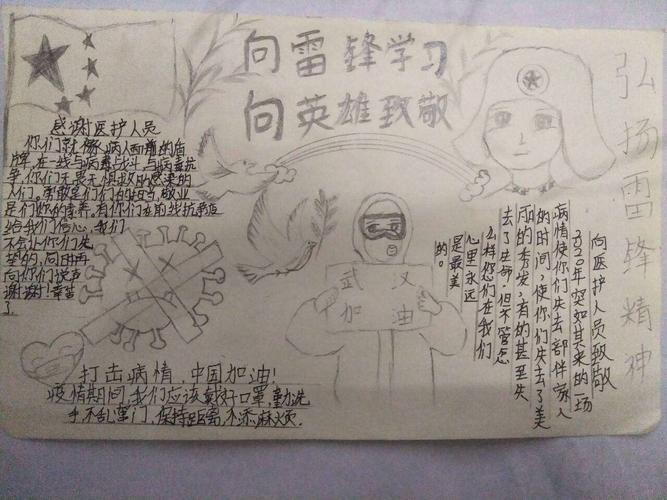 向雷锋学习
向英雄致敬
弘扬雷锋精神
感谢医护人员
你们就像病人面前的盾
牌,在一线与病毒战斗,与病毒抗
争,你们无畏无惧救助感染的
人们。勇敢是你们的 敬业
是你们的素养。有你们在前线抗争
给我们信心,我们
不会让你们失
望的,同时再
向你们说声
谢谢!辛苦
了
武汉
加油
打击病情,中国加油!
疫情期间,我们应该戴好口罩,勤洗
手,不乱窜门,保持距离,不添麻烦.
向医护人员致敬
2020年突如其来的一场
病情使你们失去部伴家人
的时间,使你们失去了美
丽的秀发,有的甚至失
去了生命,但不管怎
么样您们在我们
心里永远
是最美
的。